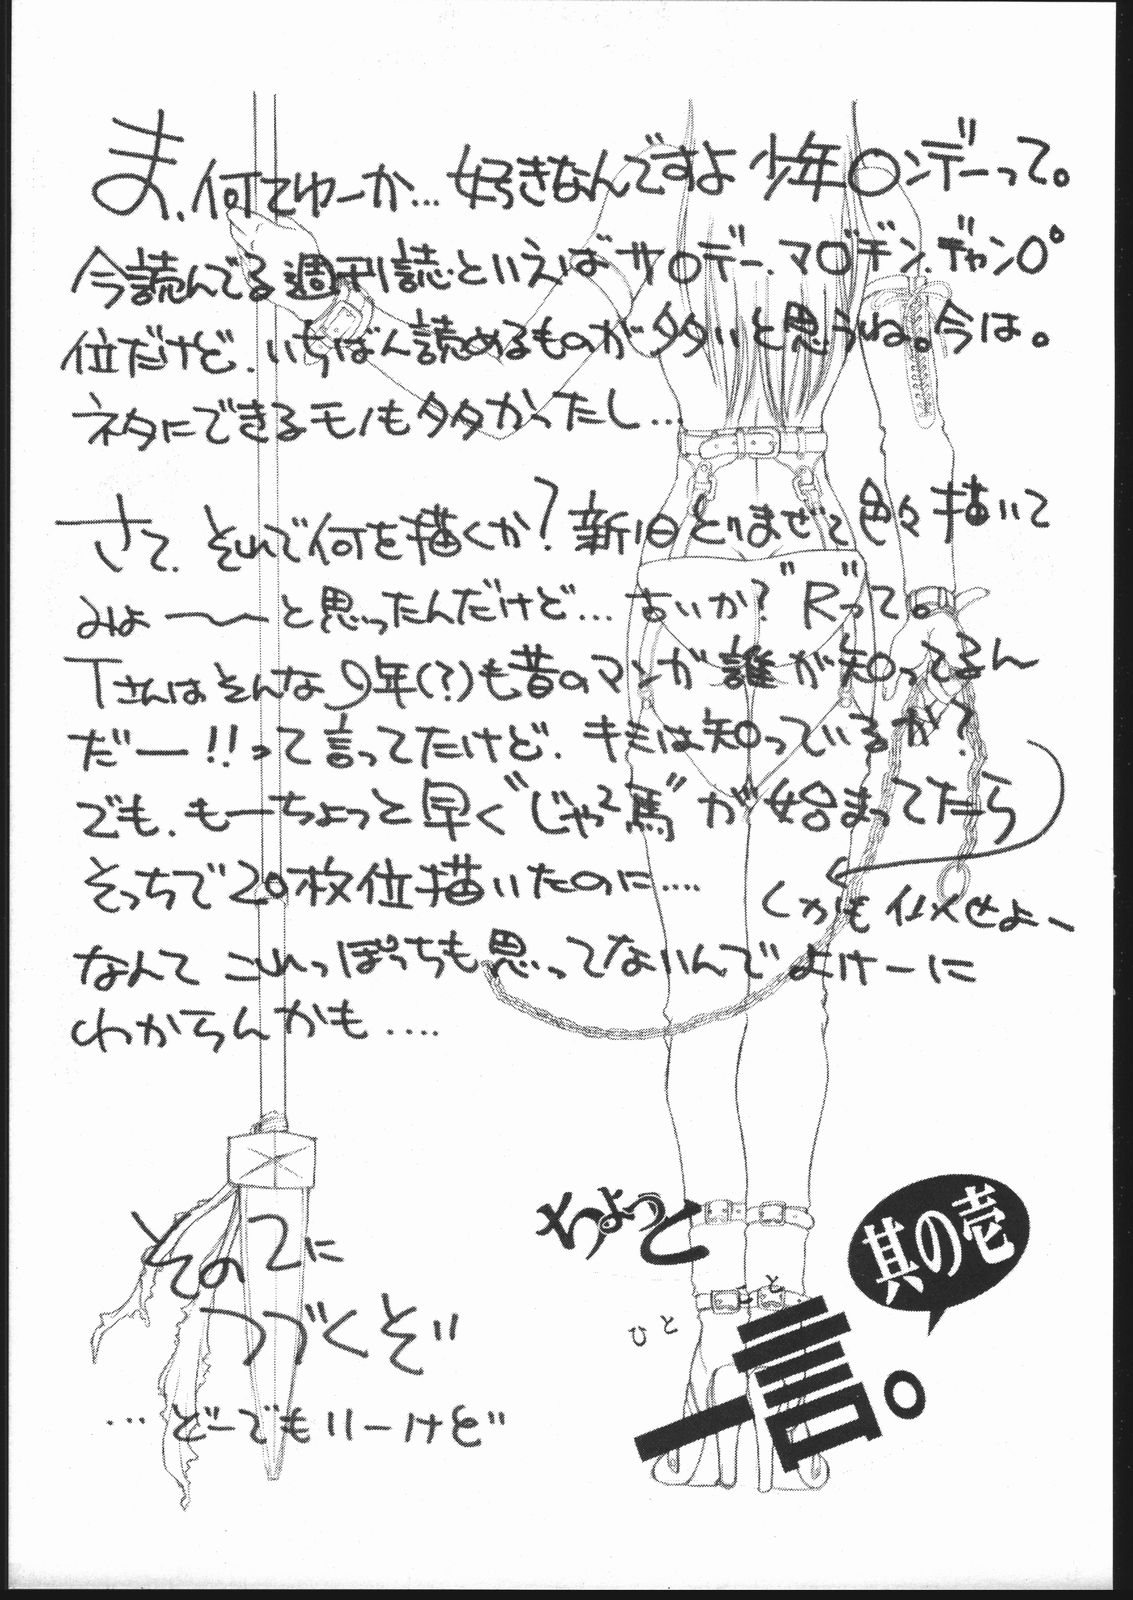 ま、何てゆーか…好きなんですよ少年〇ンデーって。
今読んでる週刊誌といえばサ〇デー、マ〇ヂン、ヂャン〇゜
位だけど、いちばん読めるものが多いと思うね。今は。
ネタにできるモノも多かったし…
さて、それで何を描くか？新旧とりまぜて色々描いて
みよ〜〜と思ったんだけど…古いか？"R"って。
Tさんはそんな9年(？)も昔のマンガ誰が知ってるん
だー!!って言ってたけど、キミは知っているか？
でも、もーちょっと早く"じゃ馬"が始まってたら
そっちで20枚位描いたのに…
しかも仏×せよ〜
なんてこれっぽっちも思ってないんでよけーに
わからんかも…
その2に
つづくぞ!!
…どーでもいーけど
ちょっと
ひとこと
一言。
其の壱